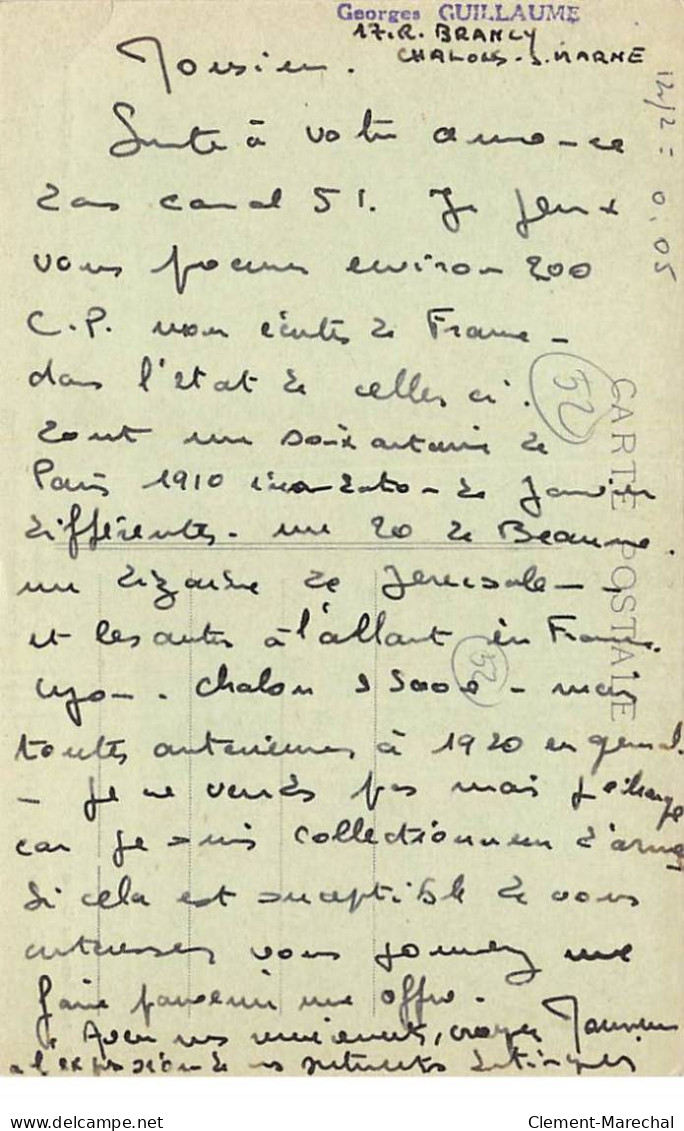 Georges GUILLAUME
17.R. BRANLY
CHALONS-S.MARNE
Monsieur.
Suite à votre annonce
dans canal 51. Je peux
vous environ 200
C.P. non écrites de France
dans l'état de celles ci.
dont une soixantaine de
Paris 1910 inondation de Janvier
différentes. une 20 de Beaune.
une dizaine de Jerusalem
et les autres à l'allant en France.
Lyon. Chalon s Saone - mais
toutes anterieures à 1920 en general.
- Je ne vends pas mais j'échange
car je suis collectionneur d'armes
Si cela est susceptible de vous
interesser vous pouvez me
faire parvenir une offre.
Avec mes remerciements, croyez Monsieur
à l'expression de mes sentiments distingués
CARTE POSTALE
52
52
12/2 = 0.05
www.delcampe.net
Clement-Marechal